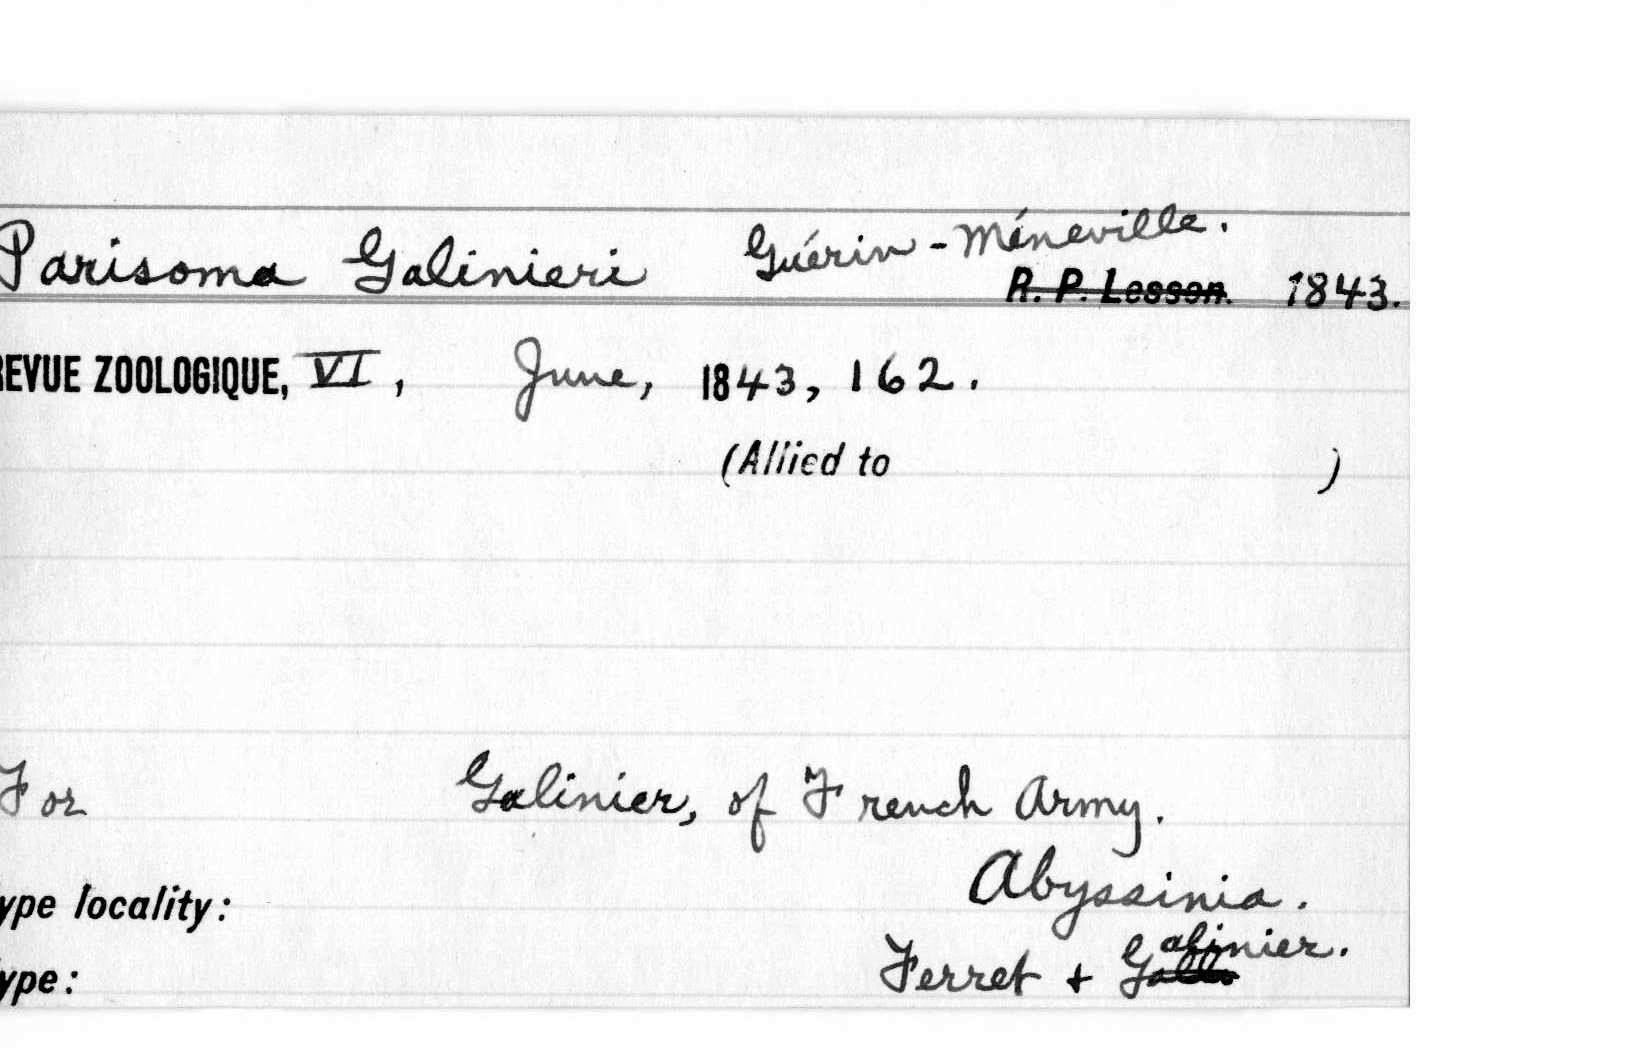 Parisoma Galinieri Guérin-Méneville.
R. P. Lesson. 1843.
REVUE ZOOLOGIQUE, VI, June, 1843, 162.
(Allied to )
For Galinier, of French Army.
ype locality: Abyssinia.
ype: Ferret + Galinier.